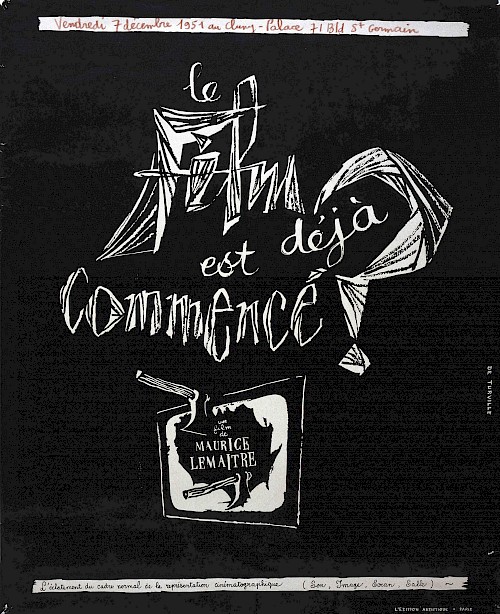 Vendredi 7 décembre 1951 au Cluny-Palace 71 Bld St Germain
le
Film
est déjà
commencé ?
un
film
de
MAURICE
LEMAITRE
DE TURVILLE
L'éclatement du cadre normal de la représentation cinématographique (Son, Image, Écran, Salle) ~
L'ÉDITION ARTISTIQUE • PARIS